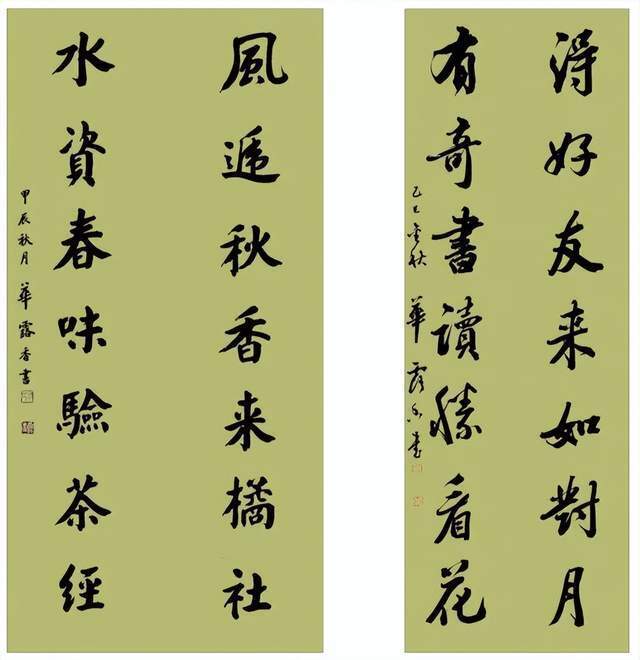 得好友来如對月
有奇書讀勝看花
乙巳金秋 華露香書
風遞秋香来橘社
水資春味驗茶經
甲辰秋月 華露香書